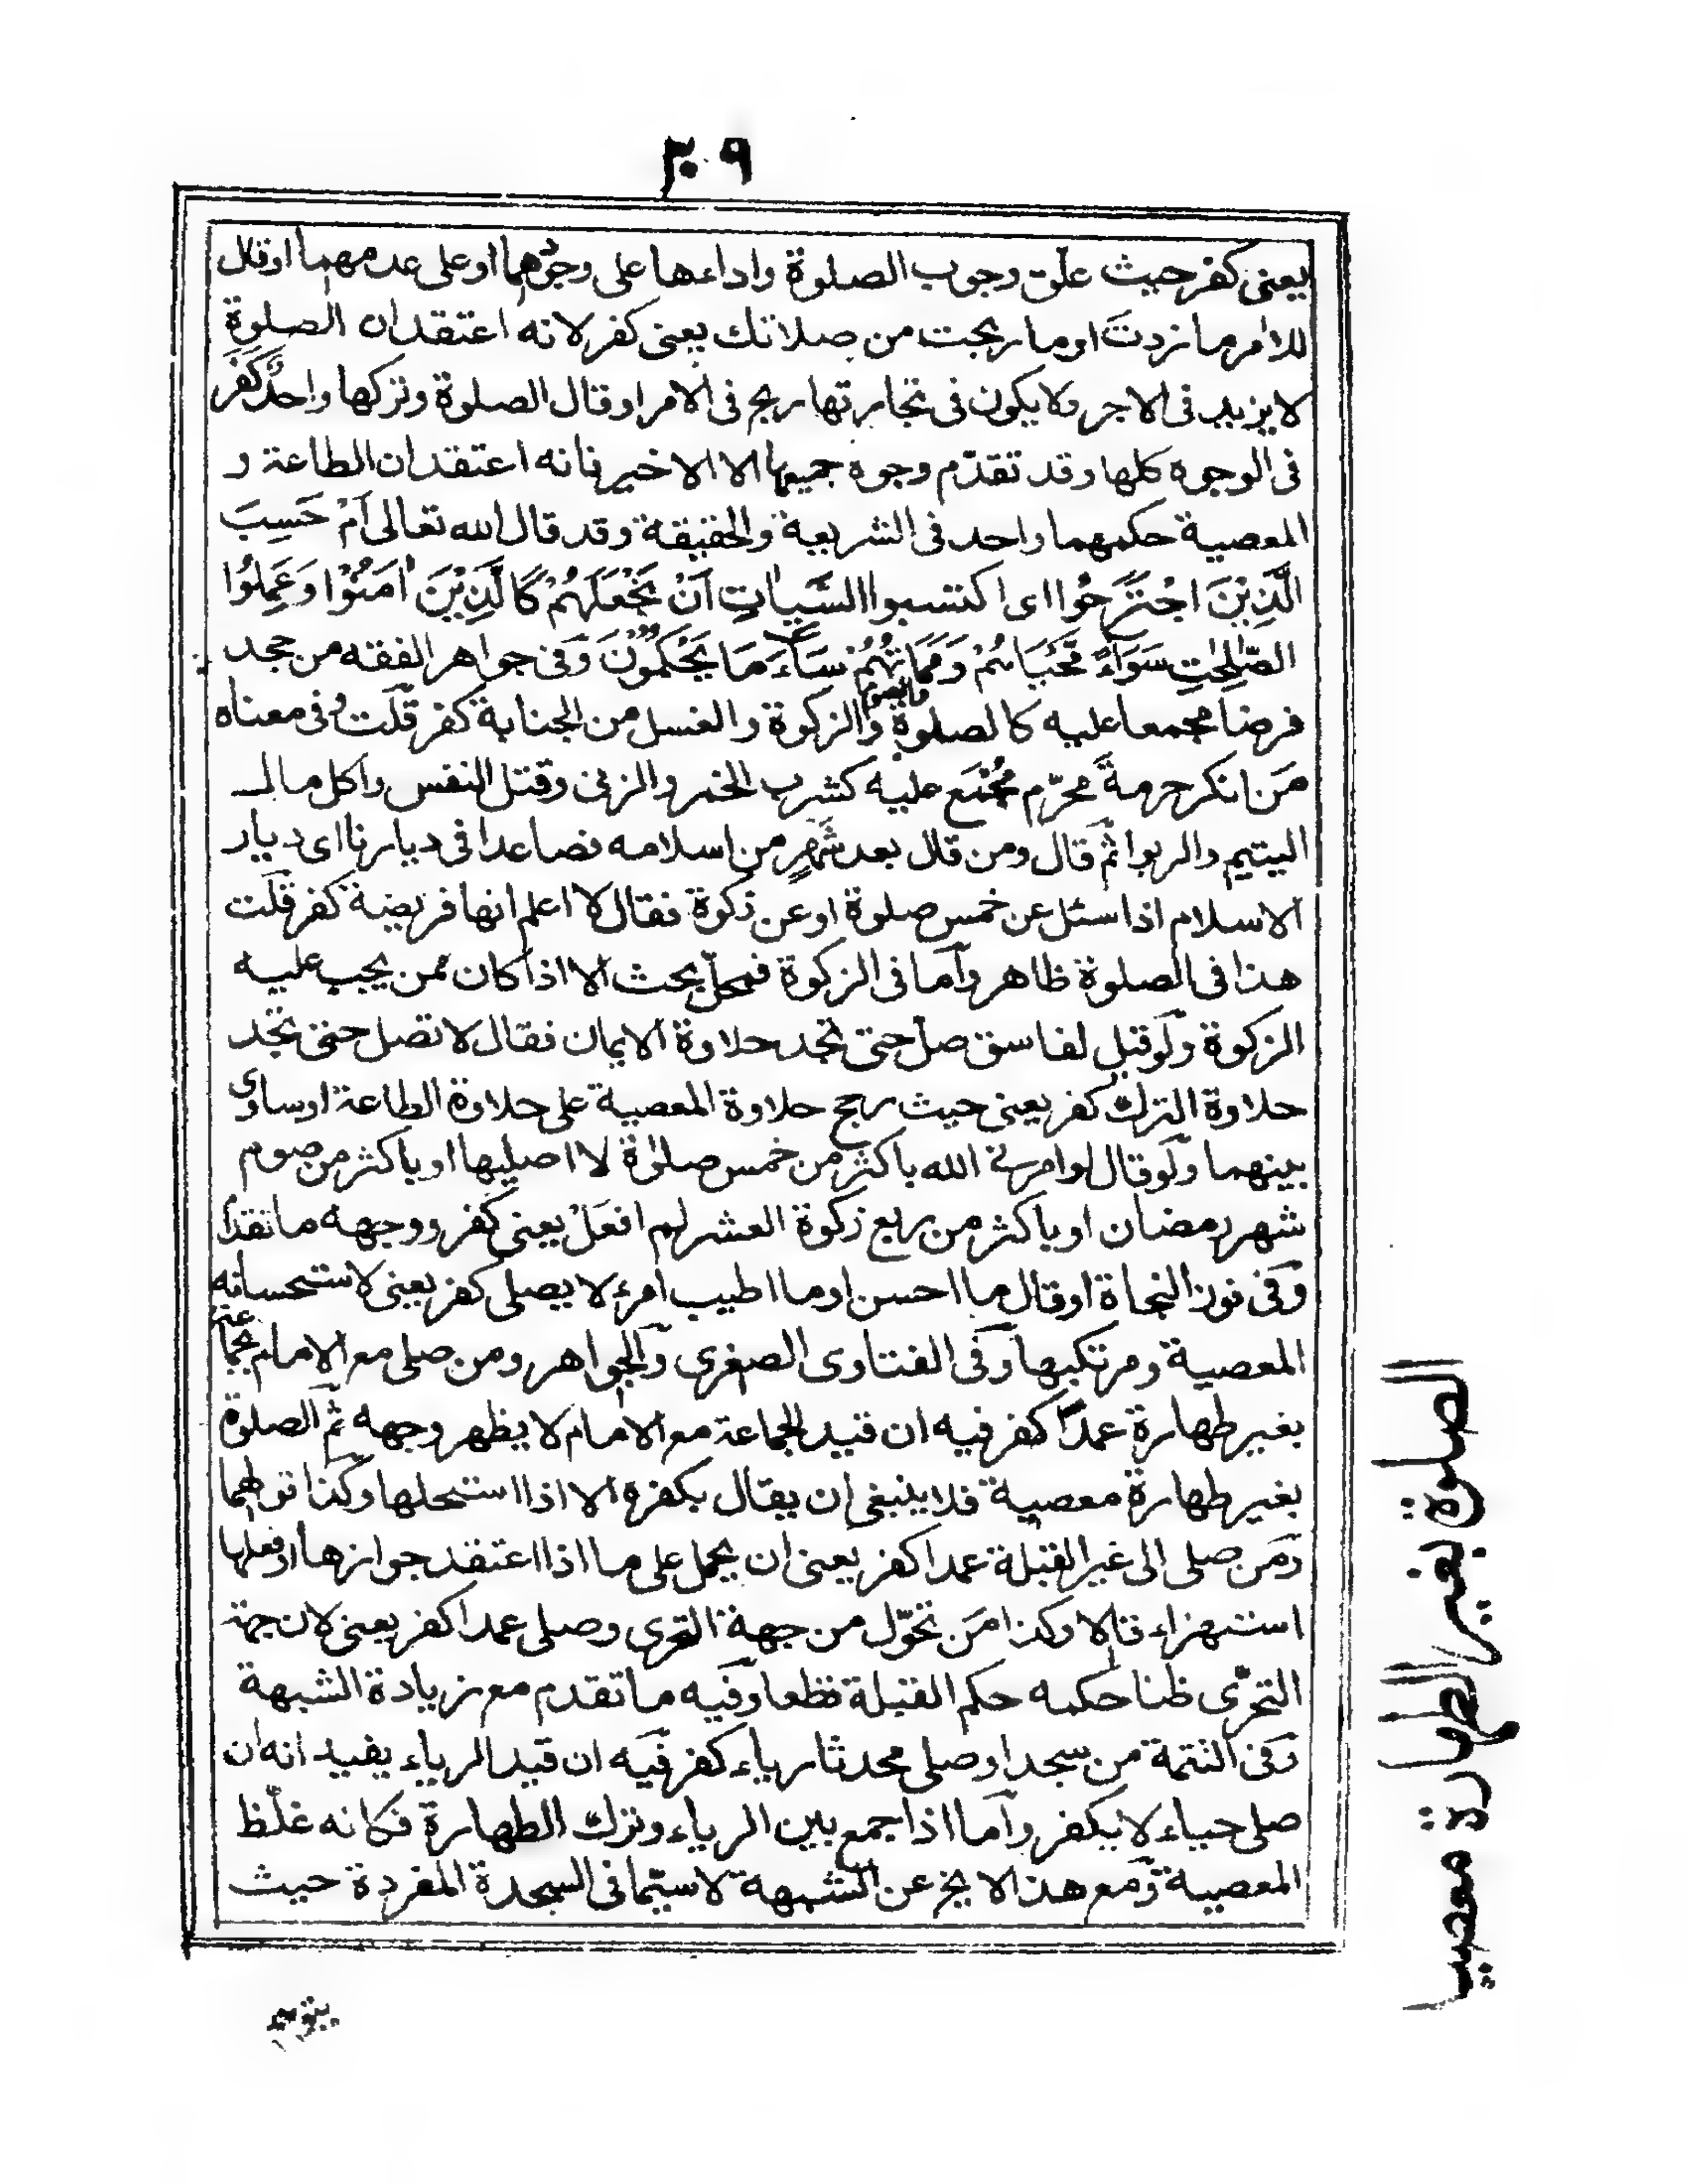 ٢٠٩
يعنى كفر حيث علّق وجوب الصلوة واداءها على وجودهما او على عدمهما او قال
للاٰمر ما زدتَ او ما ربحت من صلاتك يعنى كفر لانه اعتقد ان الصلوة
لا يزيد فى الاجر ولا يكون فى تجارتها ربح فى الامر او قال الصلوة وتركها واحدٌ كَفَرَ
فى الوجوه كلها وقد تقدّم وجوه جميعها الا الاخير فانه اعتقد ان الطاعة و
المعصية حكمهما واحد فى الشريعة والحقيقة وقد قال الله تعالى اَمْ حَسِبَ
الَّذِيْنَ اجْتَرَحُوا اى اكتسبوا السَّيِّاٰتِ اَنْ نَجْعَلَهُمْ كَالَّذِيْنَ اٰمَنُوْا وَعَمِلُوا
الصّٰلِحٰتِ سَوَاءً مَّحْيَاهُمْ وَمَمَاتُهُمْ سَاءَ مَا يَحْكُمُوْنَ وفى جواهر الفقه من جحد
فرضا مجمعا عليه كالصلوة والصوم والزكوة والغسل من الجنابة كفر قلت وفى معناه
مَن انكر حرمةَ محرّم مُجْمَع عليه كشرب الخمر والزنى وقتل النفس واكل مال
اليتيم والربوا ثم قال ومن قال بعد شَهرٍ من اسلامه فصاعدا فى ديارنا اى ديار
الاسلام اذا سئل عن خمس صلوة او عن زكوة فقال لا اعلم انها فريضة كفر قلت
هذا فى الصلوة ظاهر واما فى الزكوة فمحل بحث الا اذا كان ممن يجب عليه
الزكوة ولو قيل لفاسق صلّ حتى تجد حلاوة الايمان فقال لا تصل حتى تجد
حلاوة الترك كفر يعنى حيث رجح حلاوة المعصية على حلاوة الطاعة او ساوى
بينهما ولو قال لو امرنى الله باكثر من خمس صلوٰة لا اصليها او باكثر من صوم
شهر رمضان او باكثر من ربع زكوة العشر لم افعَلْ يعنى كفر ووجهه ما تقدم
وفى فوز النجاة او قال ما احسن او ما اطيب امرء لا يصلى كفر يعنى لاستحسانه
المعصية ومرتكبها وفى الفتاوى الصغرى والجواهر ومن صلى مع الامام بجماعة
بغير طهارة عمدًا كفر فيه ان قيد الجماعة مع الامام لا يظهر وجهه ثم الصلوة
بغير طهارة معصية فلا ينبغى ان يقال بكفره الا اذا استحلها وكذا قولهما
ومن صلى الى غير القبلة عمدا كفر يعنى ان يحمل على ما اذا اعتقد جوازها او فعلها
استهزاء قالا وكذا مَن تحوّل من جهة التحرى وصلى عمدا كفر يعنى لان جهة
التحرّى ظنا حكمه حكم القبلة قطعا وفيه ما تقدم مع زيادة الشبهة
وفى التتمة من سجد او صلى محدثا رياء كفر فيه ان قيد الرياء يفيد انه ان
صلى حياء لا يكفر واما اذا جمع بين الرياء وترك الطهارة فكانه غلّظ
المعصية ومع هذا لا يخ عن الشبهة لا سيّما فى السجدة المفردة حيث
الصلوة بغير الطهارة معصية